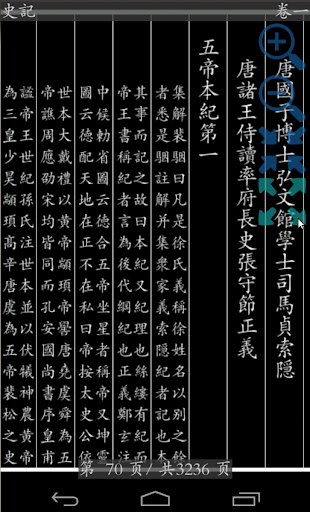 史記
卷一
唐國子博士弘文館學士司馬貞索隱
唐諸王侍讀率府長史張守節正義
五帝本紀第一
集解裴駰曰凡是徐氏義稱徐姓名以別之餘
者悉是駰註解并集眾家義索隱紀者記也本
其事而記之故曰本紀又紀理也絲縷有紀而
帝王書稱紀者言為後代綱紀也正義鄭玄注
中候勅省圖云德合五帝坐星者稱帝又坤靈
圖云德配天地在正不在私曰帝按太史公依
世本大戴禮以黃帝顓頊帝嚳唐堯虞舜為五
帝譙周應劭宋均皆同而孔安國尚書序皇甫
謐帝王世紀孫氏注世本並以伏犧神農黃帝
為三皇少昊顓頊高辛唐虞為五帝裴松之史
第 70 页/ 共3236 页